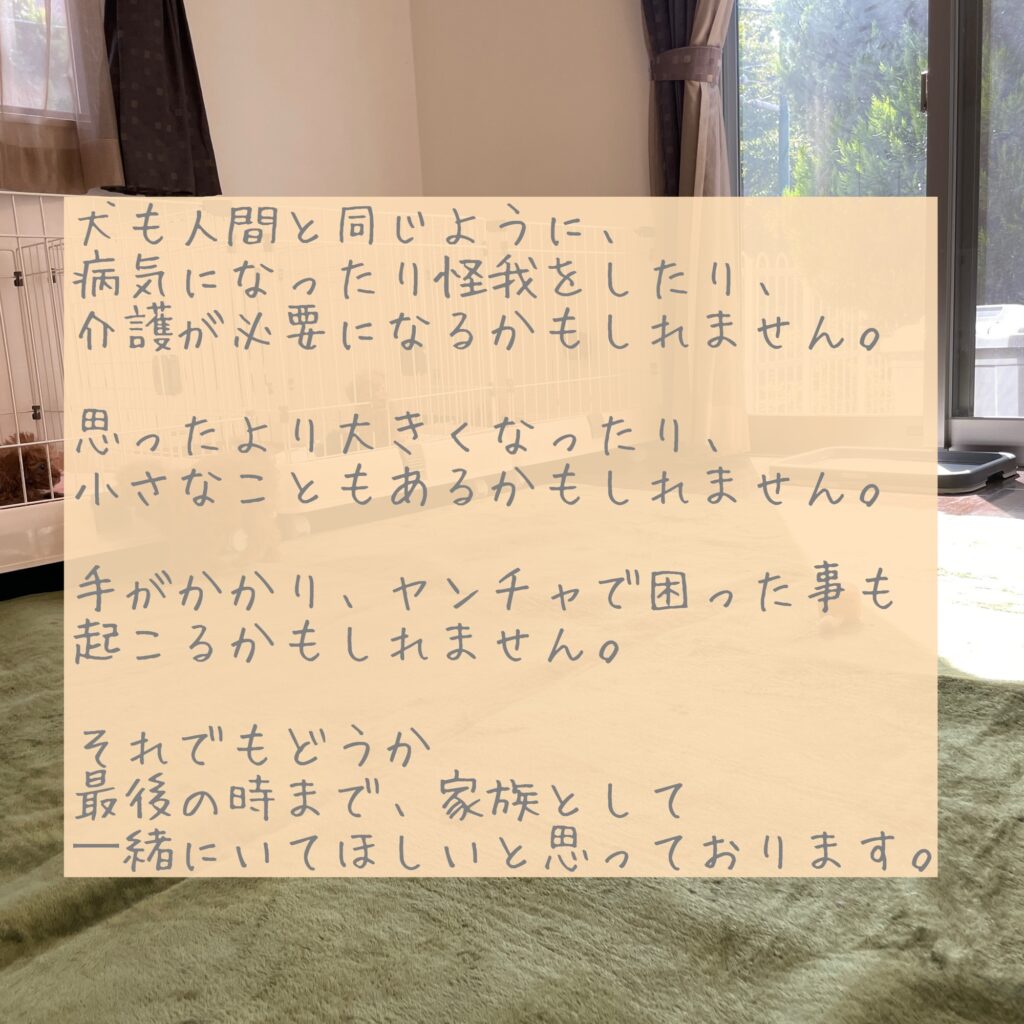 犬も人間と同じように、
病気になったり怪我をしたり、
介護が必要になるかもしれません。
思ったより大きくなったり、
小さなこともあるかもしれません。
手がかかり、ヤンチャで困った事も
起こるかもしれません。
それでもどうか
最後の時まで、家族として
一緒にいてほしいと思っております。